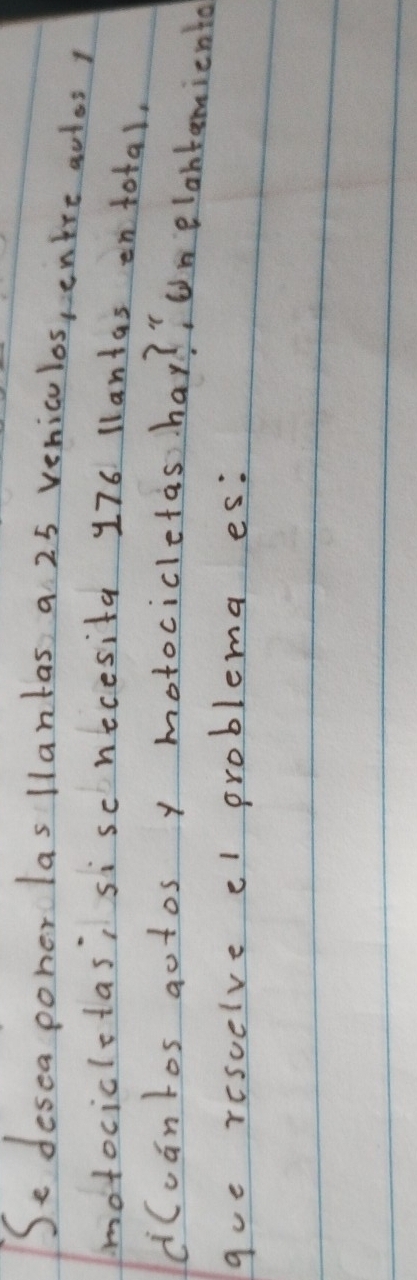 Se desea poner las llantas a 25 vehiculos, entre autos y
motocicletas, si se necesita 976 llantas en total,
¿Cuántos autos y motocicletas hay?", un plantamiento
que resuelve el problema es: